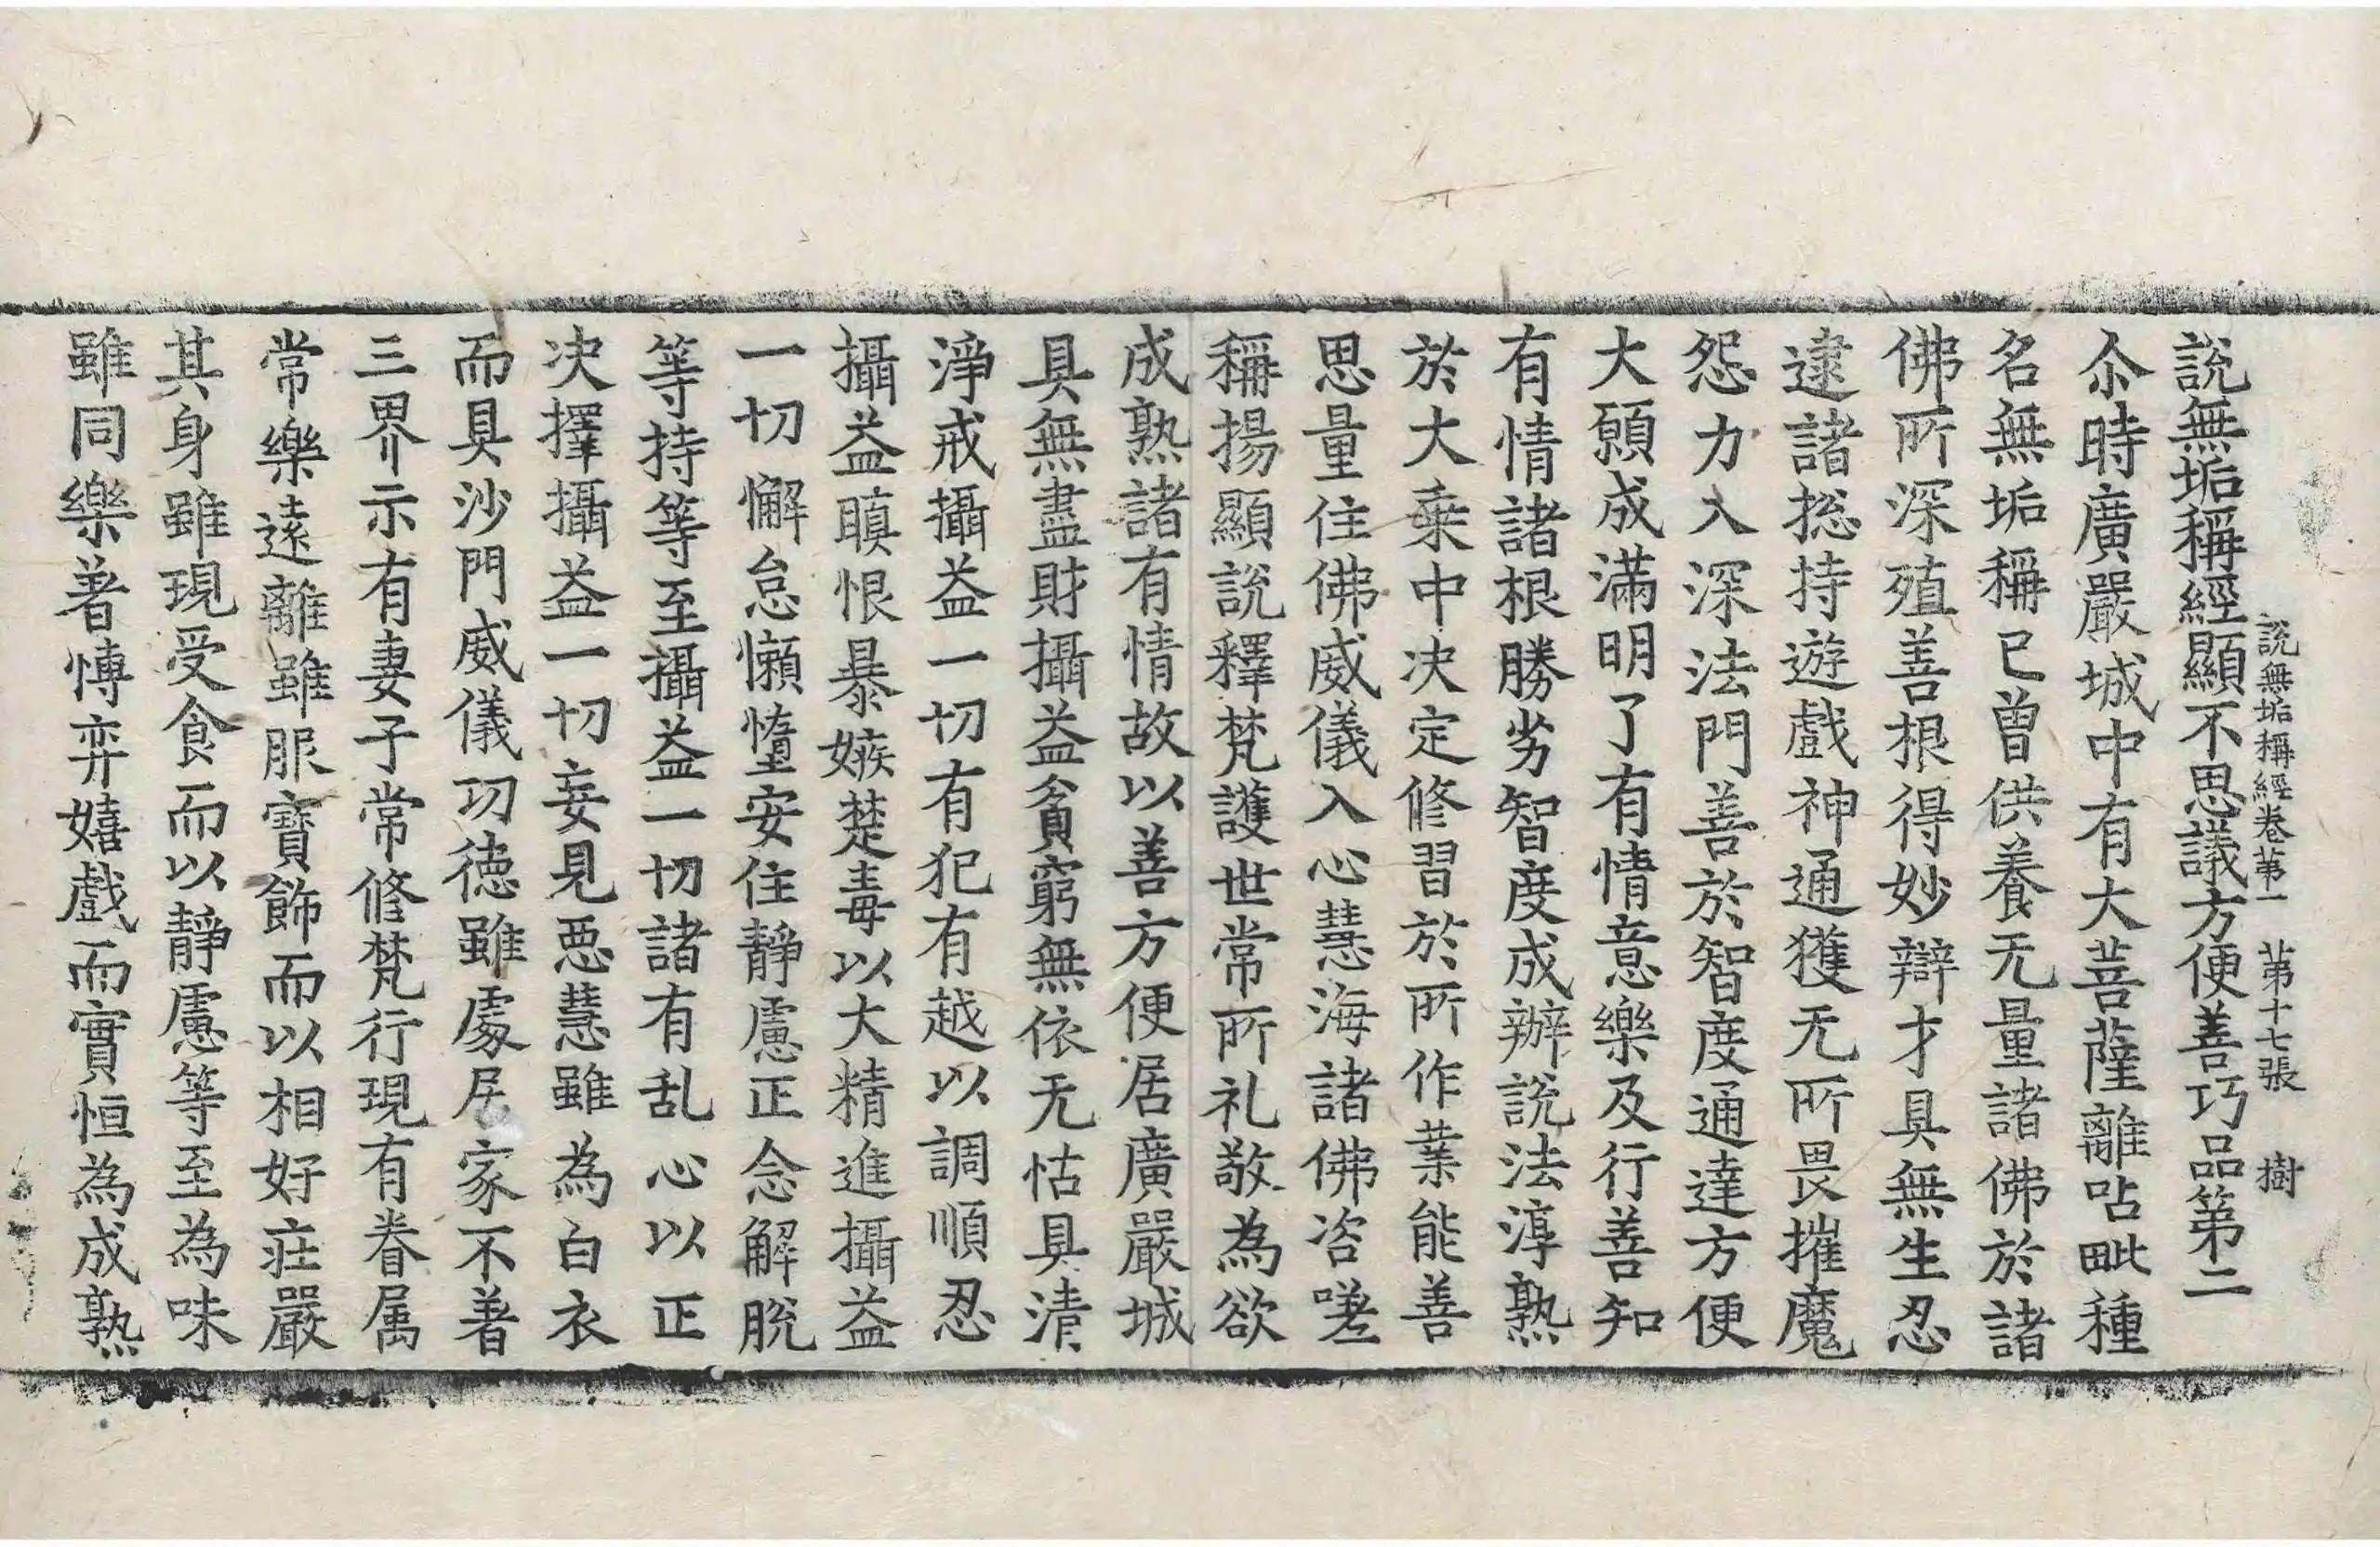 說無垢稱經卷苐一　苐十七張　樹
說無垢稱經顯不思議方便善巧品第二
尒時廣嚴城中有大菩薩離呫毗種
名無垢稱已曾供養无量諸佛於諸
佛所深殖善根得妙辯才具無生忍
逮諸揔持遊戲神通獲无所畏摧魔
怨力入深法門善於智度通達方便
大願成滿明了有情意樂及行善知
有情諸根勝劣智度成辦說法淳熟
於大乗中决定修習於所作業能善
思量住佛威儀入心慧海諸佛咨嗟
稱揚顯說釋梵護世常所礼敬為欲
成熟諸有情故以善方便居廣嚴城
具無盡財攝益貧窮無依无怙具清
淨戒攝益一切有犯有越以調順忍
攝益瞋恨暴嫉楚毒以大精進攝益
一切懈怠懶惰安住靜慮正念解脫
等持等至攝益一切諸有乱心以正
决擇攝益一切妄見惡慧雖為白衣
而具沙門威儀功德雖處居家不著
三界示有妻子常修梵行現有眷属
常樂遠離雖服寶飾而以相好莊嚴
其身雖現受食而以靜慮等至為味
雖同樂著博弈嬉戲而實恒為成熟